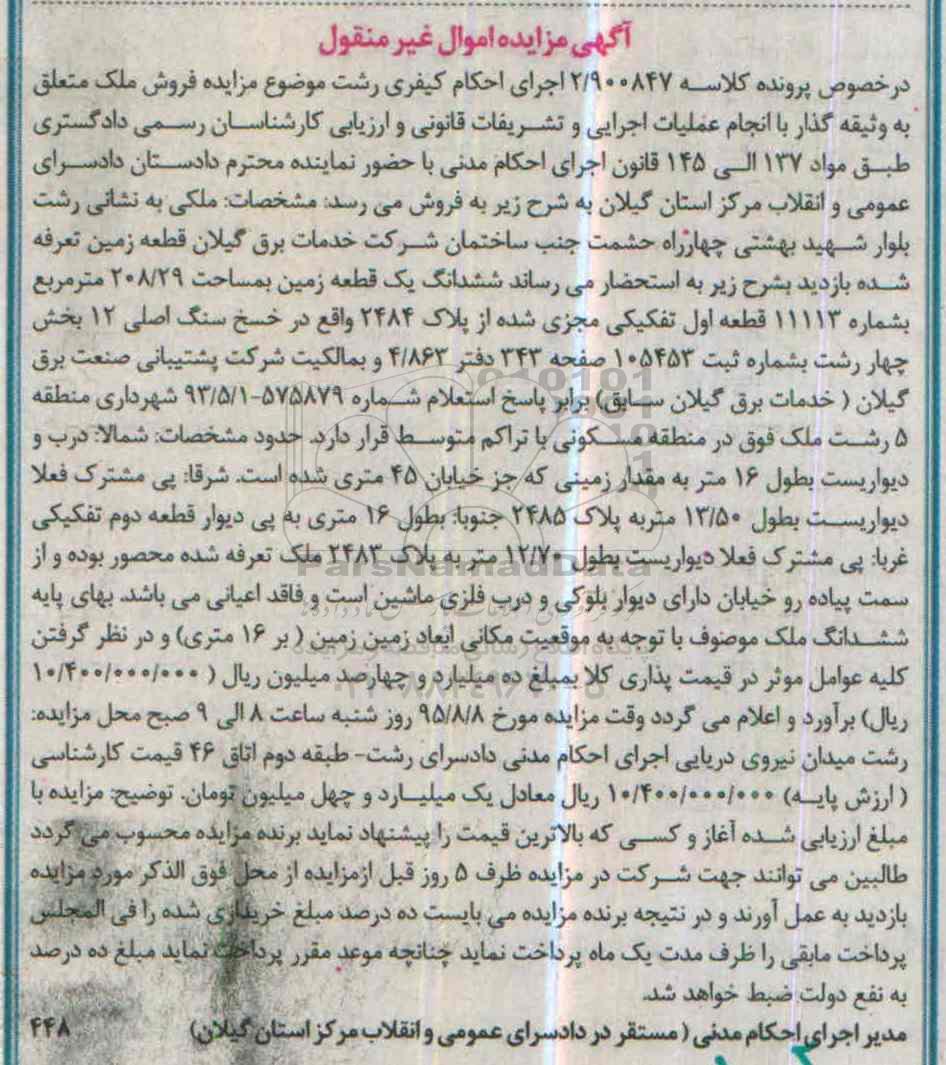 آگهی مزایده اموال غیر منقول
درخصوص پرونده کلاسه ۲/۹۰۰۸۴۷ اجرای احکام کیفری رشت موضوع مزایده فروش ملک متعلق
به وثیقه گذار با انجام عملیات اجرایی و تشریفات قانونی و ارزیابی کارشناسان رسمی دادگستری
طبق مواد ۱۳۷ الی ۱۴۵ قانون اجرای احکام مدنی با حضور نماینده محترم دادستان دادسرای
عمومی و انقلاب مرکز استان گیلان به شرح زیر به فروش می رسد: مشخصات: ملکی به نشانی رشت
بلوار شهید بهشتی چهارراه حشمت جنب ساختمان شرکت خدمات برق گیلان قطعه زمین تعرفه
شده بازدید بشرح زیر به استحضار می رساند ششدانگ یک قطعه زمین بمساحت ۲۰۸/۲۹ مترمربع
بشماره ۱۱۱۱۳ قطعه اول تفکیکی مجزی شده از پلاک ۲۴۸۴ واقع در خسخ سنگ اصلی ۱۲ بخش
چهار رشت بشماره ثبت ۱۰۵۴۵۳ صفحه ۳۴۳ دفتر ۴/۸۶۳ و بمالکیت شرکت پشتیبانی صنعت برق
گیلان ( خدمات برق گیلان سابق) برابر پاسخ استعلام شماره ۵۷۵۸۷۹-۹۳/۵/۱ شهرداری منطقه
۵ رشت ملک فوق در منطقه مسکونی با تراکم متوسط قرار دارد. حدود مشخصات: شمالا: درب و
دیواریست بطول ۱۶ متر به مقدار زمینی که جز خیابان ۴۵ متری شده است. شرقا: پی مشترک فعلا
دیواریست بطول ۱۳/۵۰ متربه پلاک ۲۴۸۵ جنوبا: بطول ۱۶ متری به پی دیوار قطعه دوم تفکیکی
غربا: پی مشترک فعلا دیواریست بطول ۱۲/۷۰ متر به پلاک ۲۴۸۳ ملک تعرفه شده محصور بوده و از
ParsNamadData
سمت پیاده رو خیابان دارای دیوار بلوکی و درب فلزی ماشین است و فاقد اعیانی می باشد. بهای پایه
ششدانگ ملک موصوف با توجه به موقعیت مکانی ابعاد زمین زمین ( بر ۱۶ متری) و در نظر گرفتن
کلیه عوامل موثر در قیمت پذاری کلا بمبلغ ده میلیارد و چهارصد میلیون ریال ( ۱۰/۴۰۰/۰۰۰/۰۰۰
ریال) برآورد و اعلام می گردد وقت مزایده مورخ ۹۵/۸/۸ روز شنبه ساعت ۸ الی ۹ صبح محل مزایده:
رشت میدان نیروی دریایی اجرای احکام مدنی دادسرای رشت- طبقه دوم اتاق ۴۶ قیمت کارشناسی
( ارزش پایه) ۱۰/۴۰۰/۰۰۰/۰۰۰ ریال معادل یک میلیارد و چهل میلیون تومان. توضیح: مزایده با
مبلغ ارزیابی شده آغاز و کسی که بالاترین قیمت را پیشنهاد نماید برنده مزایده محسوب می گردد
طالبین می توانند جهت شرکت در مزایده ظرف ۵ روز قبل ازمزایده از محل فوق الذکر مورد مزایده
بازدید به عمل آورند و در نتیجه برنده مزایده می بایست ده درصد مبلغ خریداری شده را فی المجلس
پرداخت مابقی را ظرف مدت یک ماه پرداخت نماید چنانچه موعد مقرر پرداخت نماید مبلغ ده درصد
به نفع دولت ضبط خواهد شد.
مدیر اجرای احکام مدنی ( مستقر در دادسرای عمومی و انقلاب مرکز استان گیلان) ۴۴۸